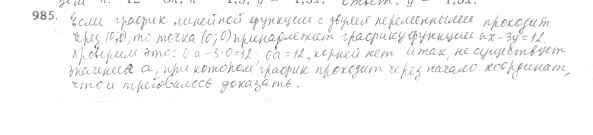 985. Если график линейной функции с двумя переменными проходит
через (0,0), то точка (0;0) принадлежит графику функции ax-3y=12
Проверим это: 0·a-3·0=12 0a=12, корней нет итак, не существует
значения a, при котором график проходит через начало координат,
что и требовалось доказать.